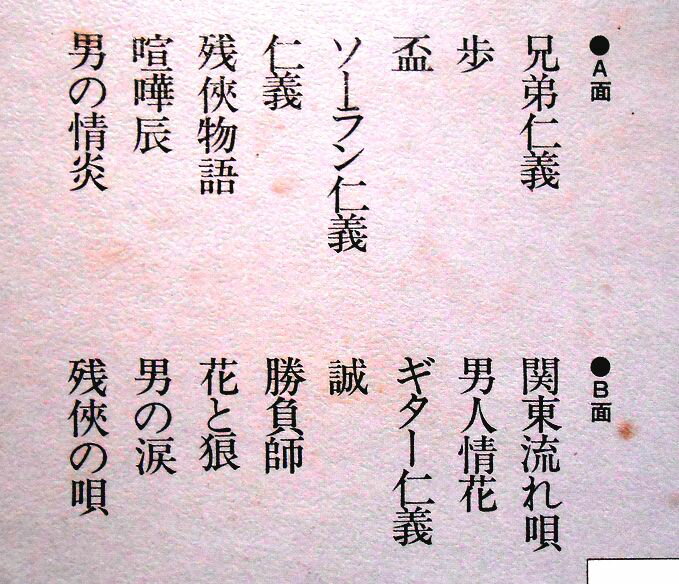 ●A面
兄弟仁義
歩
盃
ソーラン仁義
仁義
残侠物語
喧嘩辰
男の情炎
●B面
関東流れ唄
男人情花
ギター仁義
誠
勝負師
花と狼
男の涙
残侠の唄